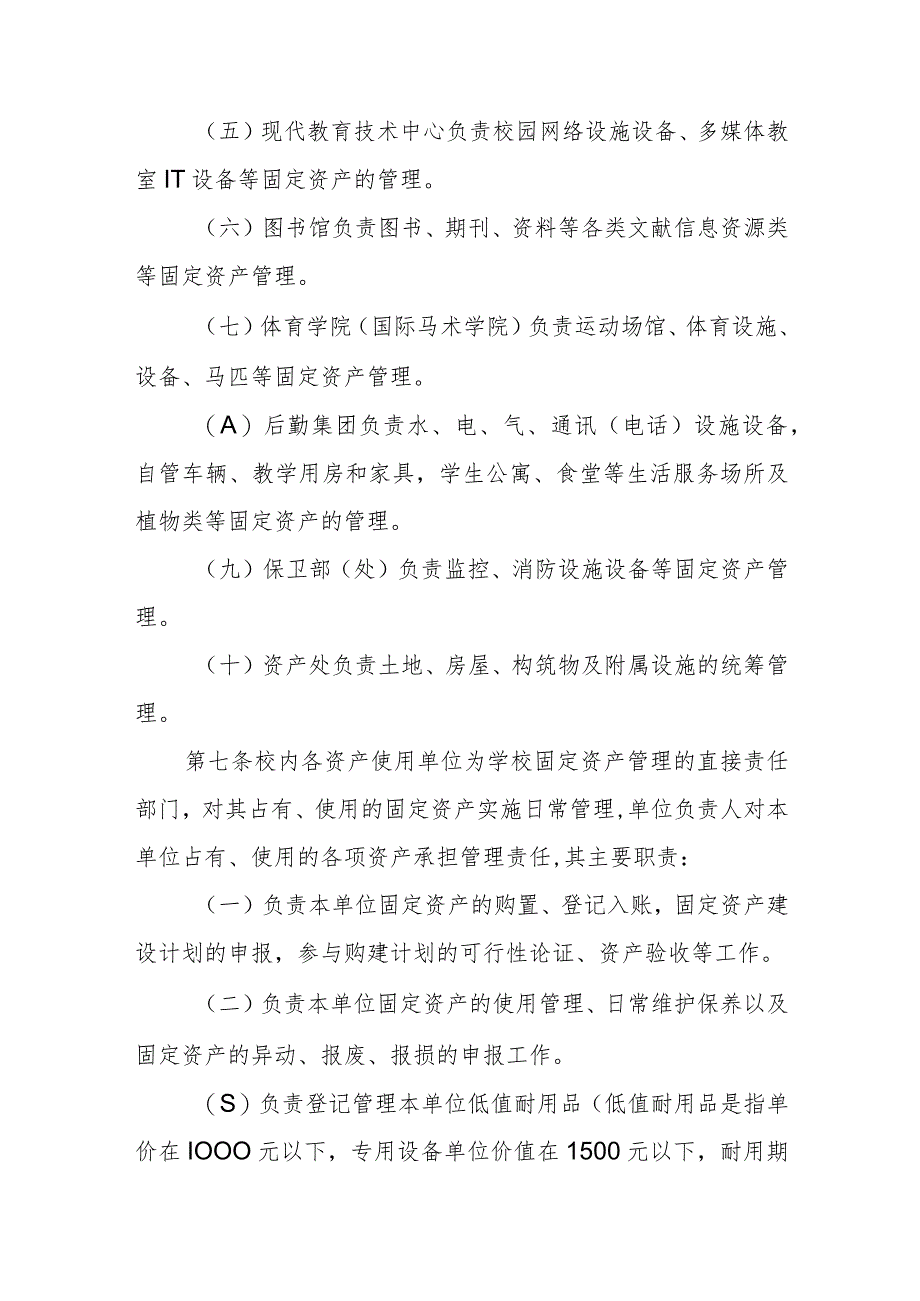 （五）现代教育技术中心负责校园网络设施设备、多媒体教
室IT设备等固定资产的管理。
（六）图书馆负责图书、期刊、资料等各类文献信息资源类
等固定资产管理。
（七）体育学院（国际马术学院）负责运动场馆、体育设施、
设备、马匹等固定资产管理。
（A）后勤集团负责水、电、气、通讯（电话）设施设备，
自管车辆、教学用房和家具，学生公寓、食堂等生活服务场所及
植物类等固定资产的管理。
（九）保卫部（处）负责监控、消防设施设备等固定资产管
理。
（十）资产处负责土地、房屋、构筑物及附属设施的统筹管
理。
第七条校内各资产使用单位为学校固定资产管理的直接责任
部门，对其占有、使用的固定资产实施日常管理,单位负责人对本
单位占有、使用的各项资产承担管理责任,其主要职责：
（一）负责本单位固定资产的购置、登记入账，固定资产建
设计划的申报，参与购建计划的可行性论证、资产验收等工作。
（二）负责本单位固定资产的使用管理、日常维护保养以及
固定资产的异动、报废、报损的申报工作。
（S）负责登记管理本单位低值耐用品（低值耐用品是指单
价在IOOO元以下，专用设备单位价值在1500元以下，耐用期